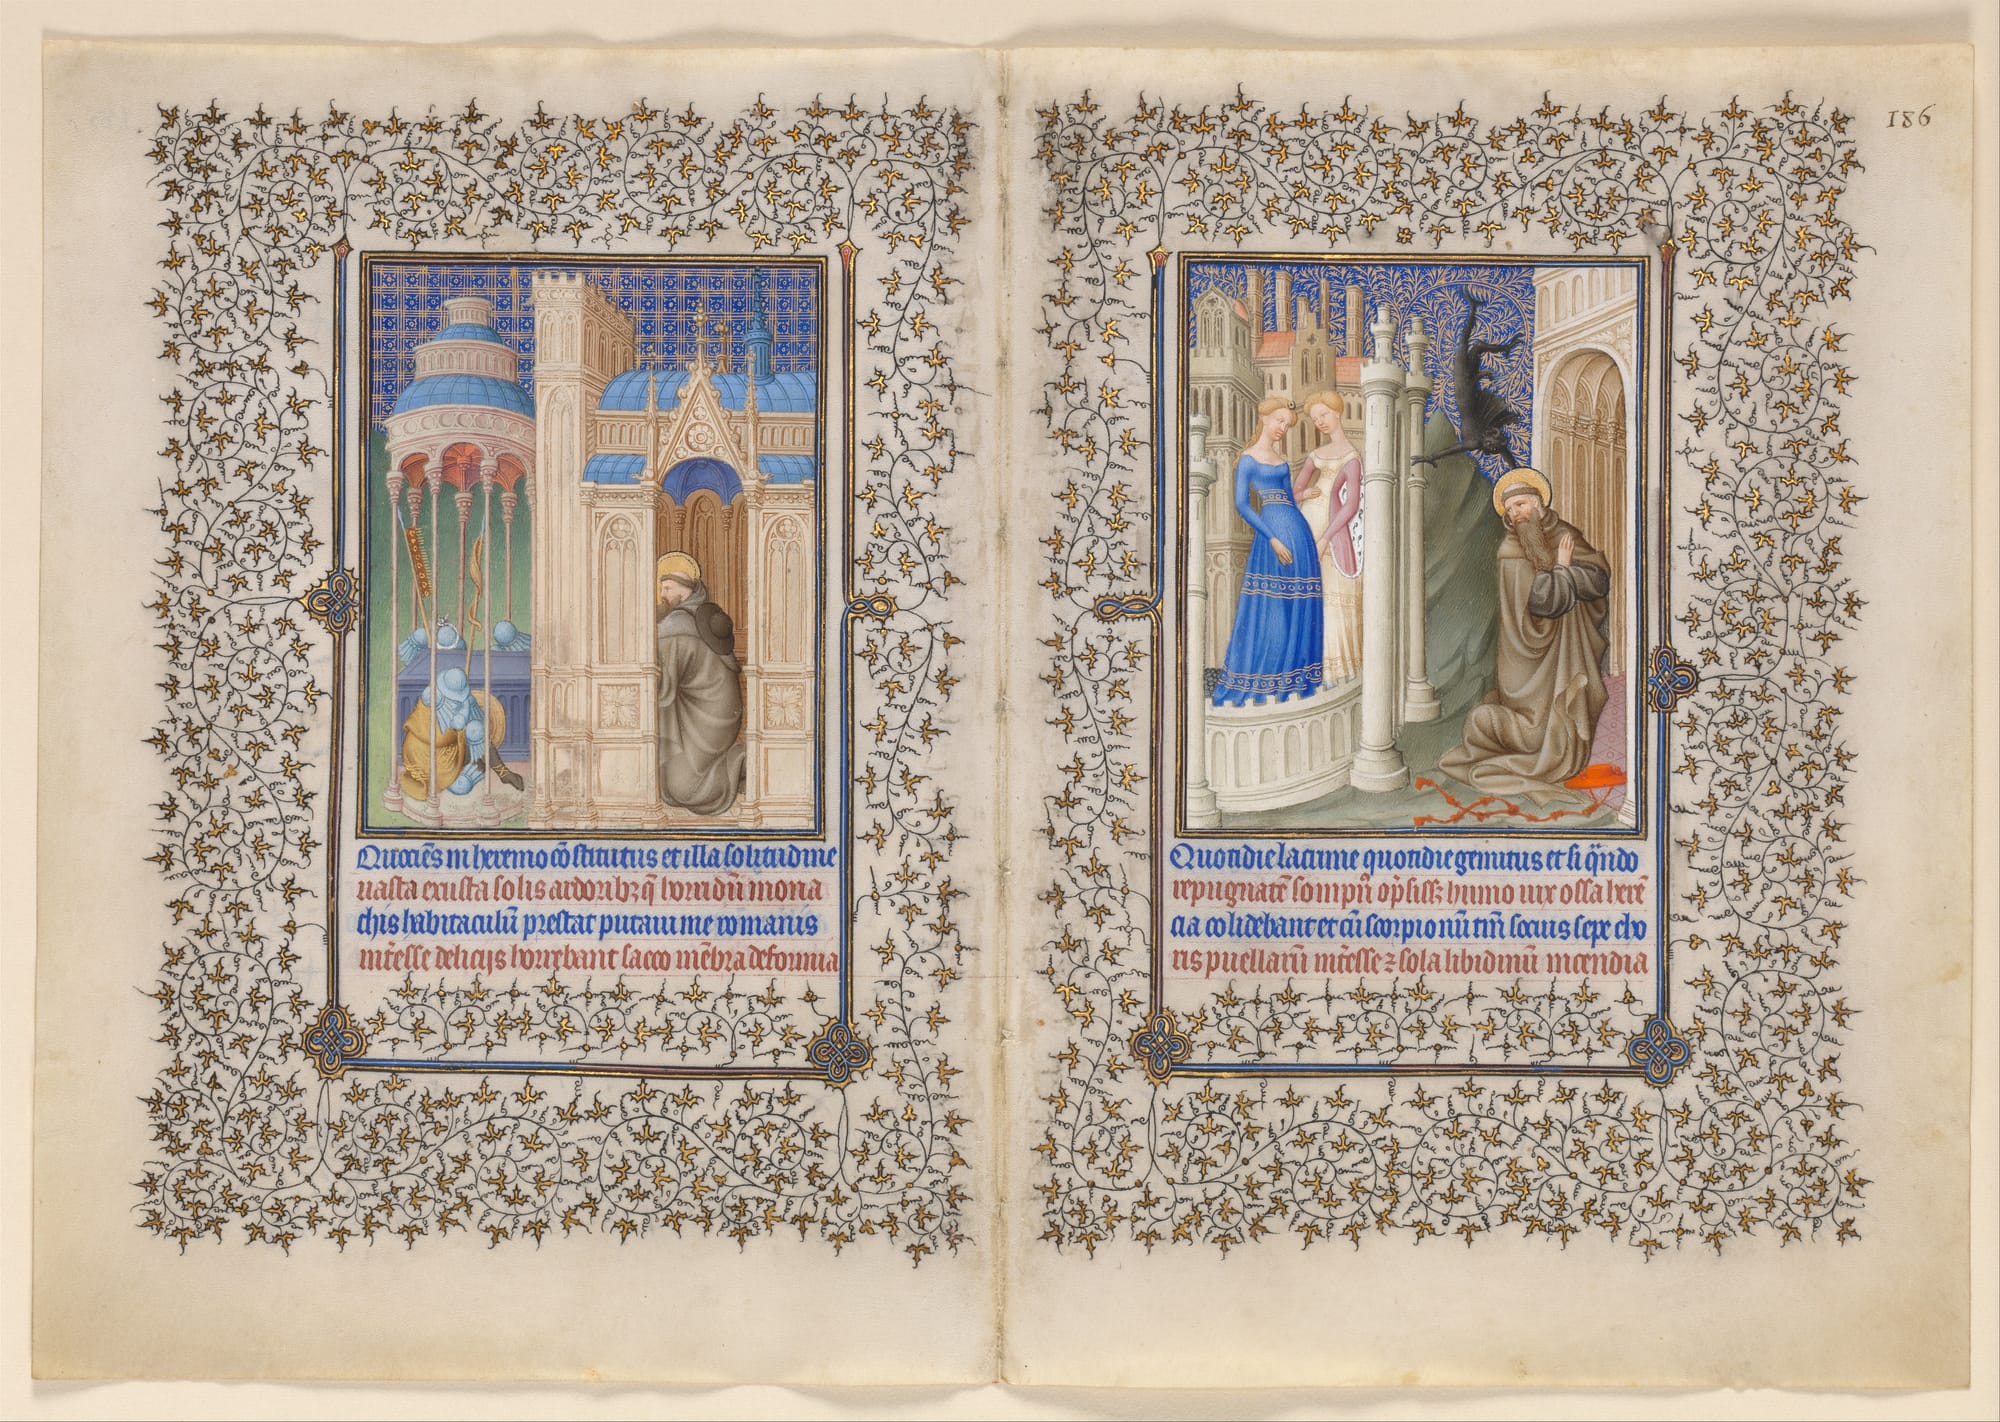 Quociēs in heremo cōstitutus et illa solitudine
uasta exusta solis ardoribꝫ q̄ horridū mona
chis habitaculū prestat putaui me romanis
int̄esse delicijs horrebant sacco mēbra deformia
186
Quotidie lacrime quotidie gemitus et si qn̄do
repugnatē sompn̄ op̄sissꝫ humo uix ossa herē
cia colidebant et cū scorpionū tm̄ socius sepe cho
ris puellarū int̄esse ⁊ sola libidinū incendia